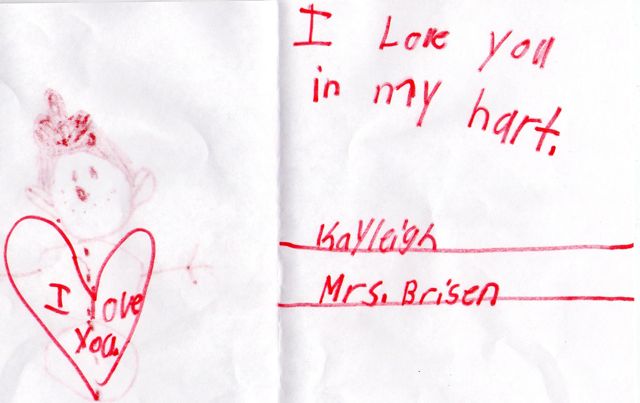 I Love you
in my hart.
Kayleigh
Mrs. Brisen
I love
you.